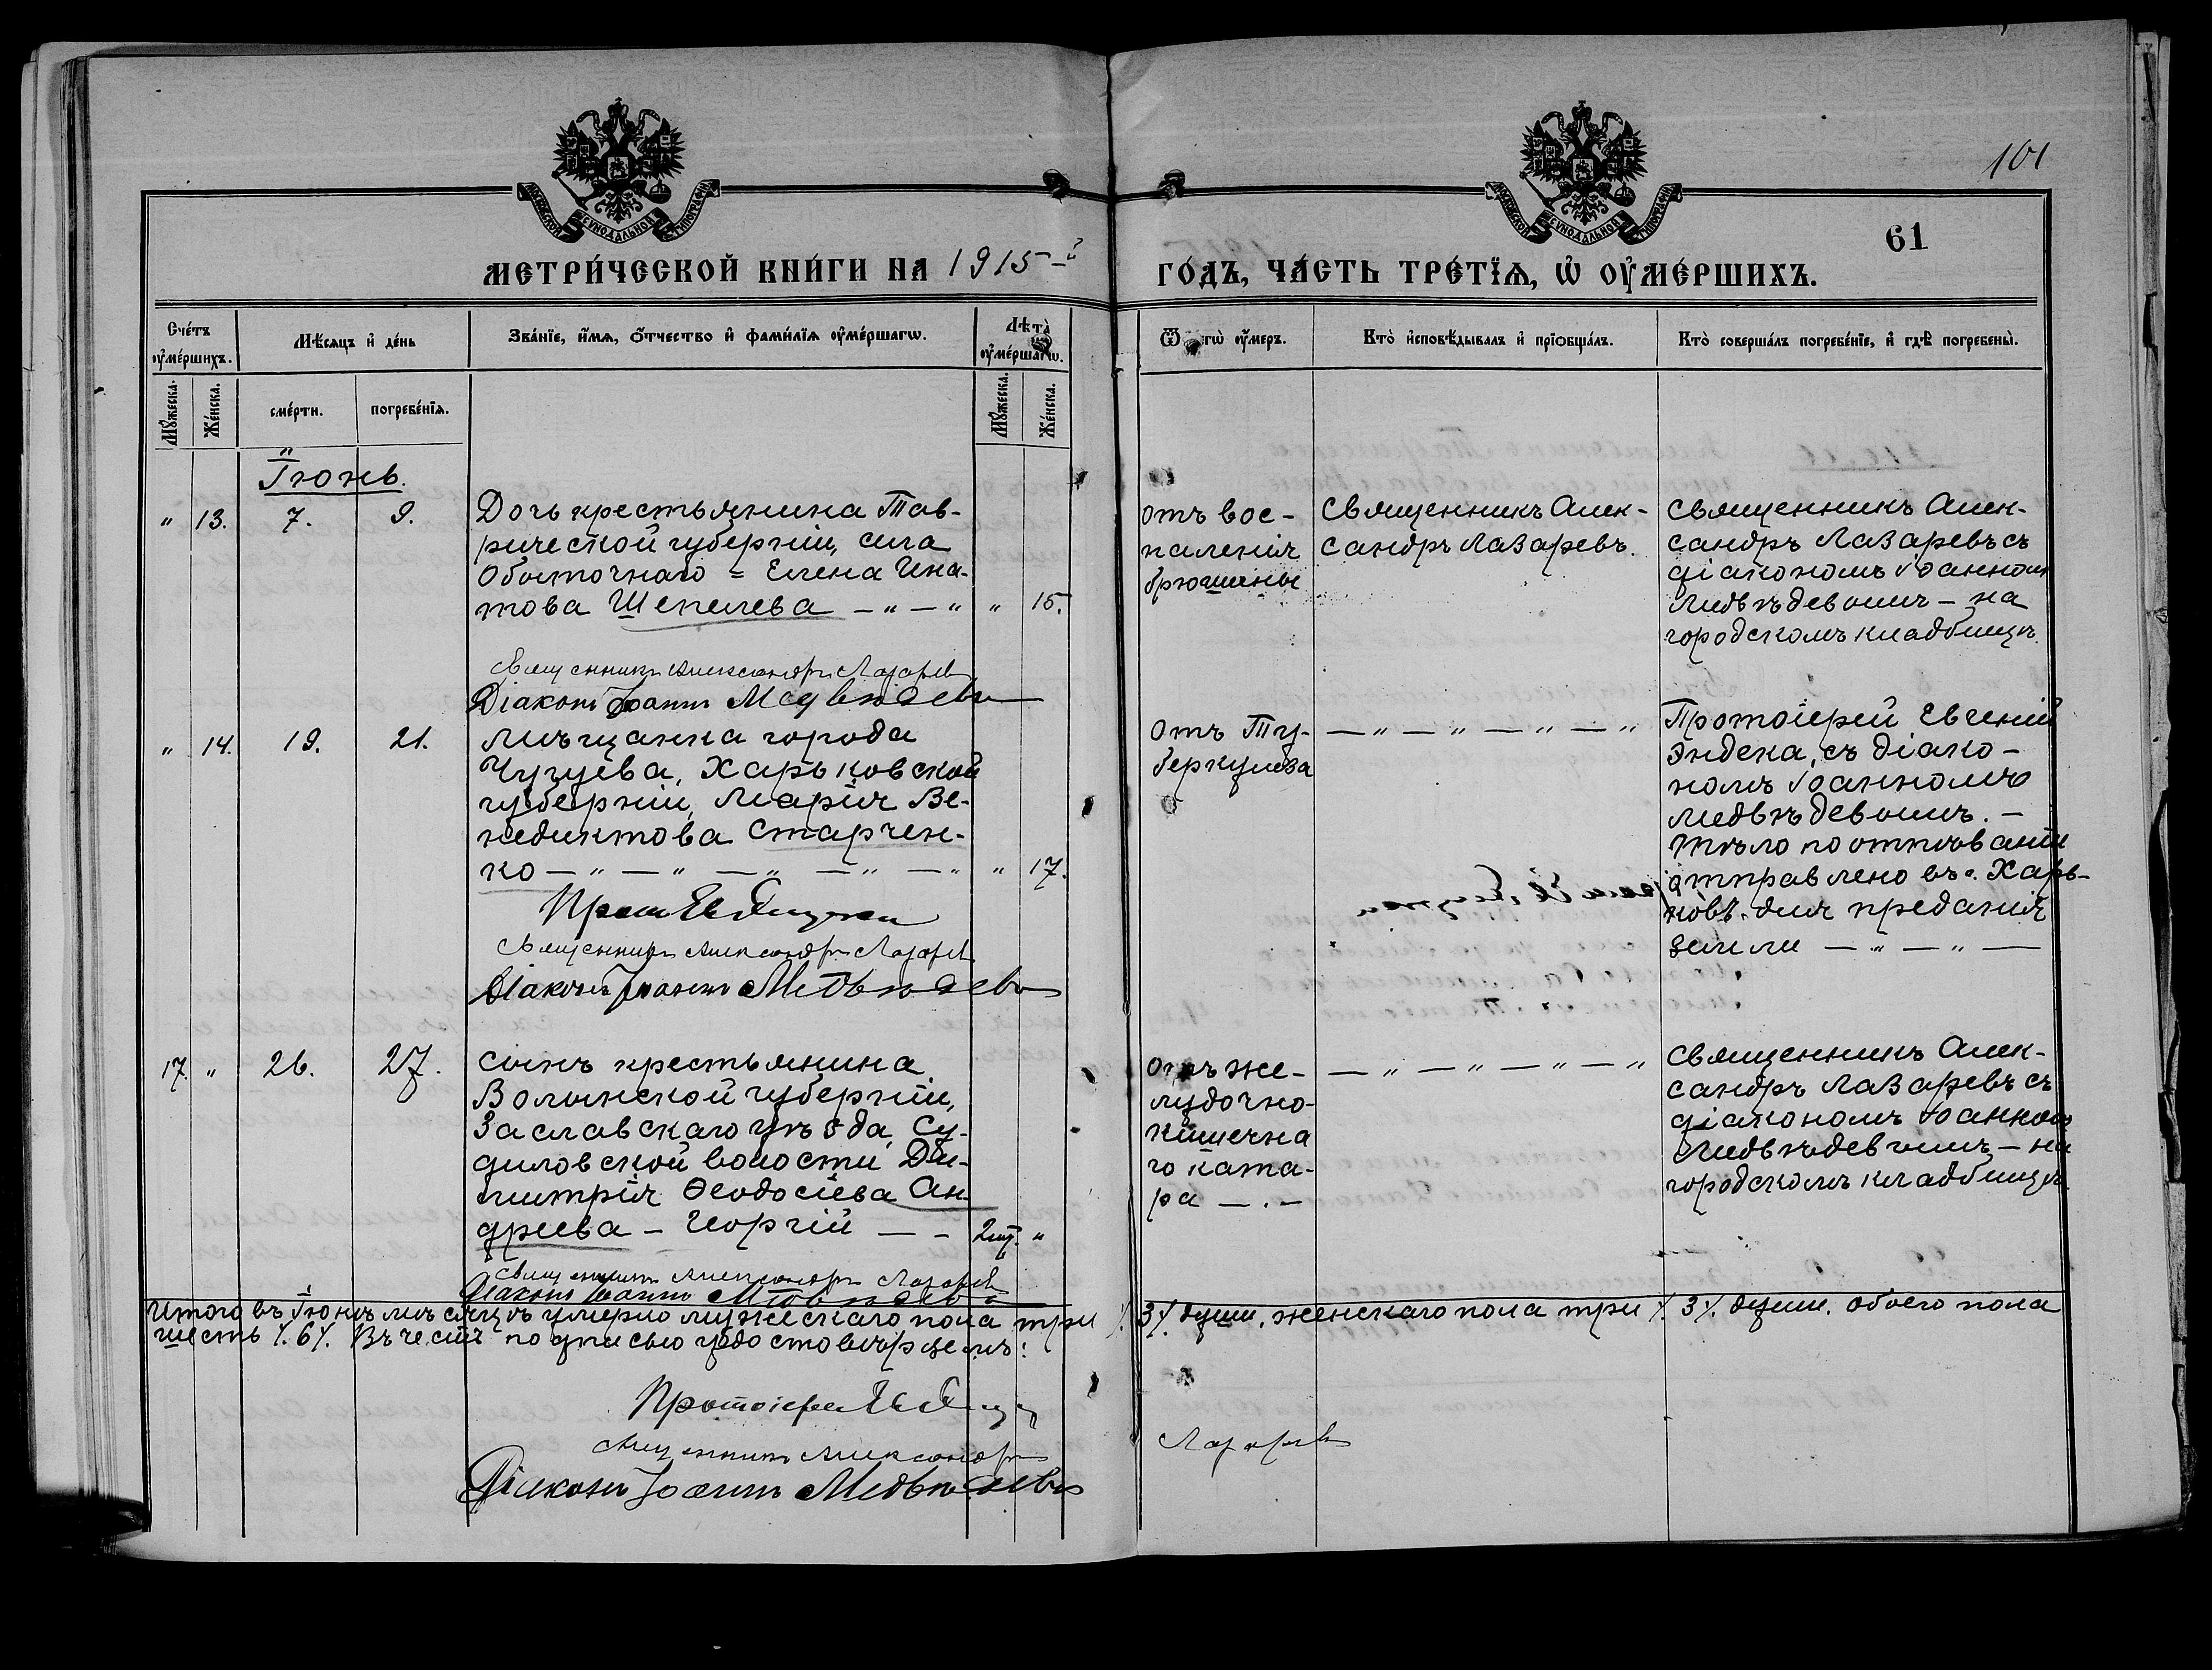 101
61
МОСКОВСКОЙ СѴНОДАЛЬНОЙ ТИПОГРАФІИ
МОСКОВСКОЙ СѴНОДАЛЬНОЙ ТИПОГРАФІИ
МЕТРИ́ЧЕСКОЙ КНИ́ГИ НА 1915-й
ГО́ДЪ, ЧА́СТЬ ТРЕ́ТЇѦ, Ѡ҆ ОУ҆МЕ́РШИХЪ.
Сче́тъ оу҆ме́ршихъ.
Мѣ́сяцъ и҆ де́нь
Зва́нїе, и҆́мѧ, ѻ҆́тчество и҆ фами́лїѧ оу҆ме́ршагѡ.
Лѣ́та оу҆ме́ршагѡ.
Ѿ чегѡ̀ оу҆́меръ.
Кто̀ и҆сповѣ́дывалъ и҆ прїѡбща́лъ.
Кто̀ соверша́лъ погребе́нїе, и҆ гдѣ̀ погребены̀.
Мꙋ́жеска.
Же́нска.
сме́рти.
погребе́нїѧ.
Мꙋ́жеска.
Же́нска.
Іюнь.
" 13. 7. 9.
Дочь крестьянина Тав-
рической губерніи, села
Обыточнаго = Елена Игна-
това Шепелева — " — " " 15.
отъ вос-
паленія
брюшины
Священникъ Алек-
сандръ Лазаревъ.
Священникъ Алек-
сандръ Лазаревъ съ
діакономъ Іоанномъ
Медвѣдевымъ — на
городскомъ кладбищѣ.
Священникъ Александръ Лазаревъ
Діаконъ Іоаннъ Медвѣдевъ
" 14. 19. 21.
Мѣщанка города
Чугуева, Харьковской
губерніи, Марія Ве-
недиктова Старчен-
ко — " — " — " — " — " " 17.
отъ Ту-
беркулеза
— " — " — " — "
Протоіерей Евгеній
Эндека, съ діако-
номъ Іоанномъ
Медвѣдевымъ. —
Тѣло по отпѣваніи
отправлено въ г. Харь-
ковъ, для преданія
земли — " — " —
Прот. Ев. Эндека
Священникъ Александръ Лазаревъ
Діаконъ Іоаннъ Медвѣдевъ
17. " 26. 27.
Сынъ крестьянина
Волынской губерніи,
Заславскаго уѣзда, Су-
диловской волости Ди-
митрія Ѳеодосіева Ан-
дреева — Георгій — — 2 "
отъ же-
лудочно-
кишечна
го ката-
ра — . —
— " — " — " — "
Священникъ Алек-
сандръ Лазаревъ съ
діакономъ Іоанномъ
Медвѣдевымъ — на
городскомъ кладбищѣ.
Священникъ Александръ Лазаревъ
Діаконъ Іоаннъ Медвѣдевъ
Итого въ Іюнѣ мѣсяцѣ умерло мужескаго пола три /. 3 /. души, женскаго пола три /. 3 /. души. обоего пола
шесть /. 6 /. Въ чемъ подписью удостовѣряемъ:
Протоіерей Ев. Эндека
Священникъ Александръ Лазаревъ
Діаконъ Іоаннъ Медвѣдевъ